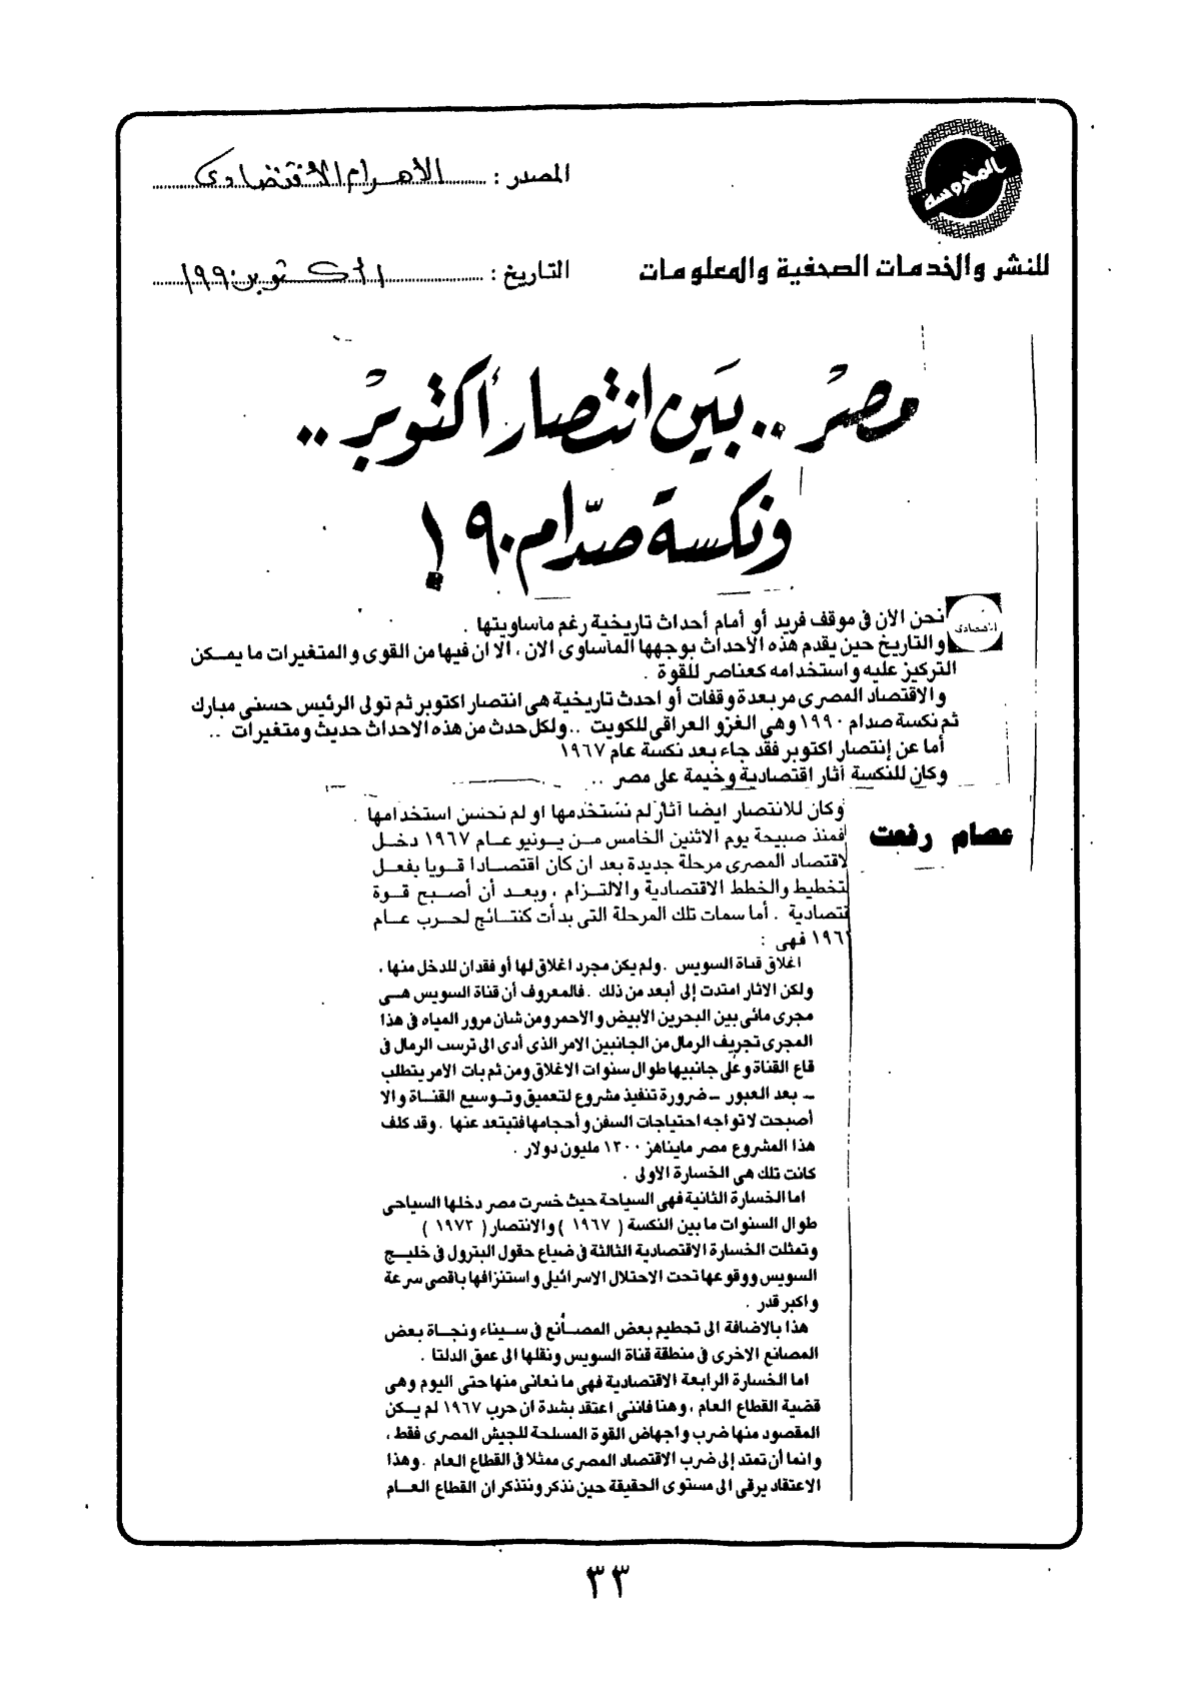 المحروسة
المصدر : الأهرام الاقتصادى
للنشر والخدمات الصحفية والمعلومات
التاريخ : ١ أكتوبر ١٩٩٠
مصر .. بين انتصار أكتوبر ..
ونكسة صدّام ٩٠ !
نحن الآن فى موقف فريد أو أمام أحداث تاريخية رغم مأساويتها .
والتاريخ حين يقدم هذه الأحداث بوجهها المأساوى الان ، الا ان فيها من القوى والمتغيرات ما يمكن
التركيز عليه واستخدامه كعناصر للقوة .
والاقتصاد المصرى مر بعدة وقفات أو احدث تاريخية هى انتصار اكتوبر ثم تولى الرئيس حسنى مبارك
ثم نكسة صدام ١٩٩٠ وهى الغزو العراقى للكويت .. ولكل حدث من هذه الاحداث حديث ومتغيرات ..
أما عن إنتصار اكتوبر فقد جاء بعد نكسة عام ١٩٦٧
وكان للنكسة آثار اقتصادية وخيمة على مصر ..
عصام رفعت
وكان للانتصار ايضا آثار لم نستخدمها او لم نحسن استخدامها .
فمنذ صبيحة يوم الاثنين الخامس من يونيو عام ١٩٦٧ دخل
لاقتصاد المصرى مرحلة جديدة بعد ان كان اقتصادا قويا بفعل
تخطيط والخطط الاقتصادية والالتزام ، وبعد أن أصبح قوة
تصادية . أما سمات تلك المرحلة التى بدأت كنتائج لحرب عام
١٩٦ فهى :
اغلاق قناة السويس . ولم يكن مجرد اغلاق لها أو فقدان للدخل منها ،
ولكن الاثار امتدت إلى أبعد من ذلك . فالمعروف أن قناة السويس هى
مجرى مائى بين البحرين الأبيض والاحمر ومن شان مرور المياه فى هذا
المجرى تجريف الرمال من الجانبين الامر الذى أدى الى ترسب الرمال فى
قاع القناة وعلى جانبيها طوال سنوات الاغلاق ومن ثم بات الامر يتطلب
ـ بعد العبور ـ ضرورة تنفيذ مشروع لتعميق وتوسيع القناة والا
أصبحت لا تواجه احتياجات السفن وأحجامها فتبتعد عنها . وقد كلف
هذا المشروع مصر مايناهز ١٣٠٠ مليون دولار .
كانت تلك هى الخسارة الاولى .
اما الخسارة الثانية فهى السياحة حيث خسرت مصر دخلها السياحى
طوال السنوات ما بين النكسة ( ١٩٦٧ ) والانتصار ( ١٩٧٣ )
وتمثلت الخسارة الاقتصادية الثالثة فى ضياع حقول البترول فى خليج
السويس ووقوعها تحت الاحتلال الاسرائيلى واستنزافها باقصى سرعة
واكبر قدر .
هذا بالاضافة الى تحطيم بعض المصانع فى سيناء ونجاة بعض
المصانع الاخرى فى منطقة قناة السويس ونقلها الى عمق الدلتا .
اما الخسارة الرابعة الاقتصادية فهى ما نعانى منها حتى اليوم وهى
قضية القطاع العام ، وهنا فاننى اعتقد بشدة ان حرب ١٩٦٧ لم يكن
المقصود منها ضرب واجهاض القوة المسلحة للجيش المصرى فقط ،
وانما أن تمتد إلى ضرب الاقتصاد المصرى ممثلا فى القطاع العام . وهذا
الاعتقاد يرقى الى مستوى الحقيقة حين نذكر ونتذكر ان القطاع العام
٣٣